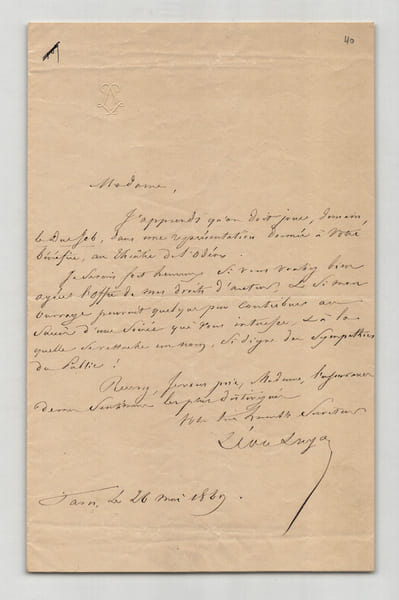 40
Madame,
J'apprends qu'on doit jouer, demain,
le Duc Job, dans une représentation donnée à Votre
Bénéfice, au théâtre de l'Odéon.
Je serais fort heureux si vous vouliez bien
agréer l'offre de mes droits d'auteur, & si mon
ouvrage pouvait quelque peu contribuer au
succès d'une Soirée qui vous intéresse, & à la
quelle se rattache un nom, si digne des Sympathies
du Public !
Recevez, je vous prie, Madame, l'assurance
de mes Sentimens les plus distingués
Votre très humble Serviteur
Léon Laya
Paris, le 26 mai